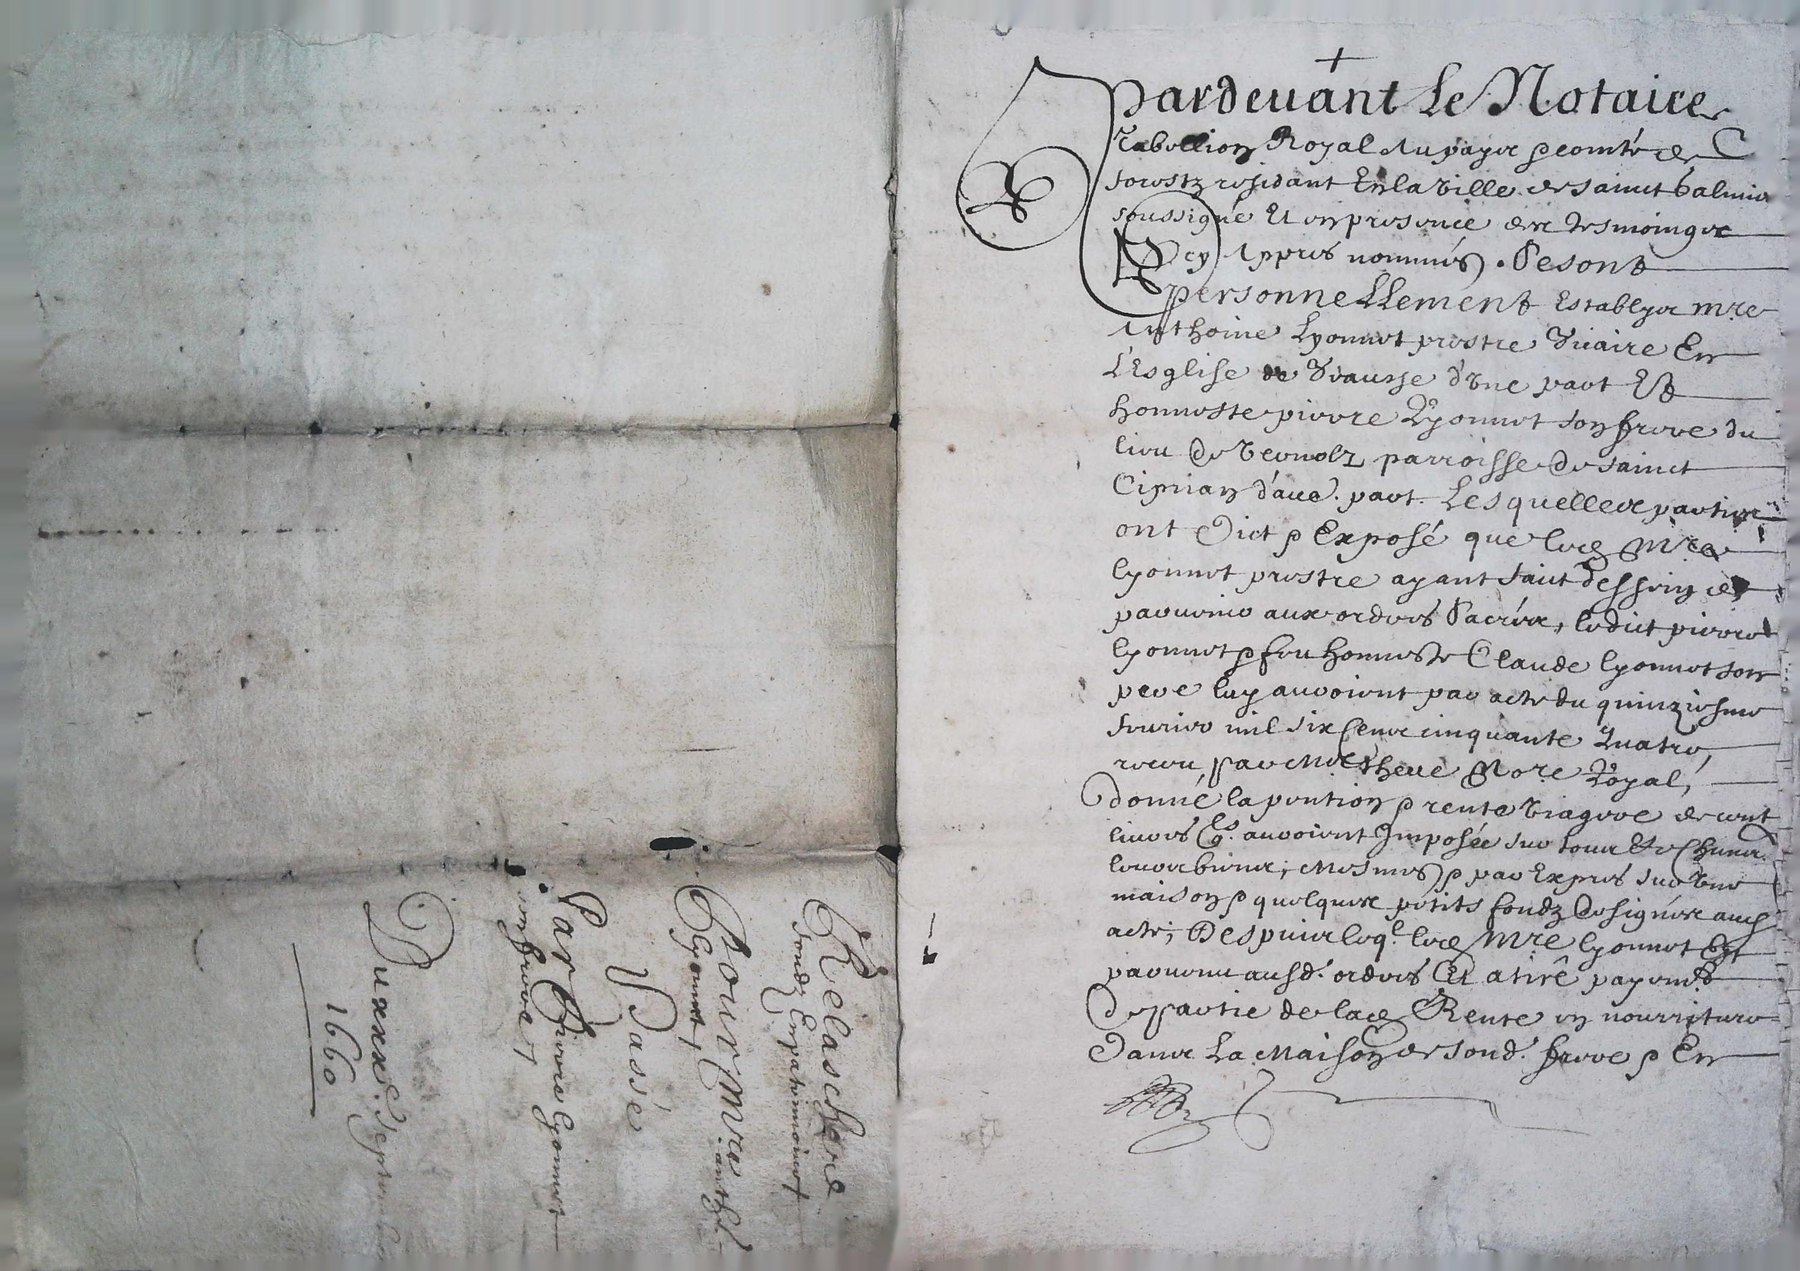 Pardevant Le Notaire
Tabellion Royal Au payx & comté de
forestz residant En la ville de sainct Galmier
soussigné Et en presence des tesmoingx
Cy Appres nommés. Se sont
personnellement Establyx mre
Anthoine Lyonnet prestre Vicaire En
L'Esglise de d'une part Et
honneste pierre Lyonnet son frere du
lieu de parroisse de sainct
Ciprian d'aue. part. Lesquellex partiex
ont Dict & Exposé que led Mre
lyonnet prestre ayant faict dessein de
parvenir aux ordres Sacréx, ledict pierre
lyonnet & feu honneste Claude lyonnet son
pere luy auroient par acte du quinziesme
feurier mil six Cens cinquante Quatre,
receu par Me Theue Nore Royal,
donné la pention & rente viagere de cent
livres qls. auroient Imposée sur tous & Chunx.
leurx bienx, mesmes & par Expres sur une
maison & quelquex petits fondz designéx aud
acte, Despuix leql. led Mre lyonnet Est
parvenu ausd. ordres Et a tiré payemt
de partie de lad Rente en nourriture
Danx La Maison de sond. frere & En
Relaschere
fondz En patrimoinet
Pour Mre anth.
Lyonnet,
Passé
Par Pierre Lyonnet
son frere,
Du xxxe. Septembre
1660